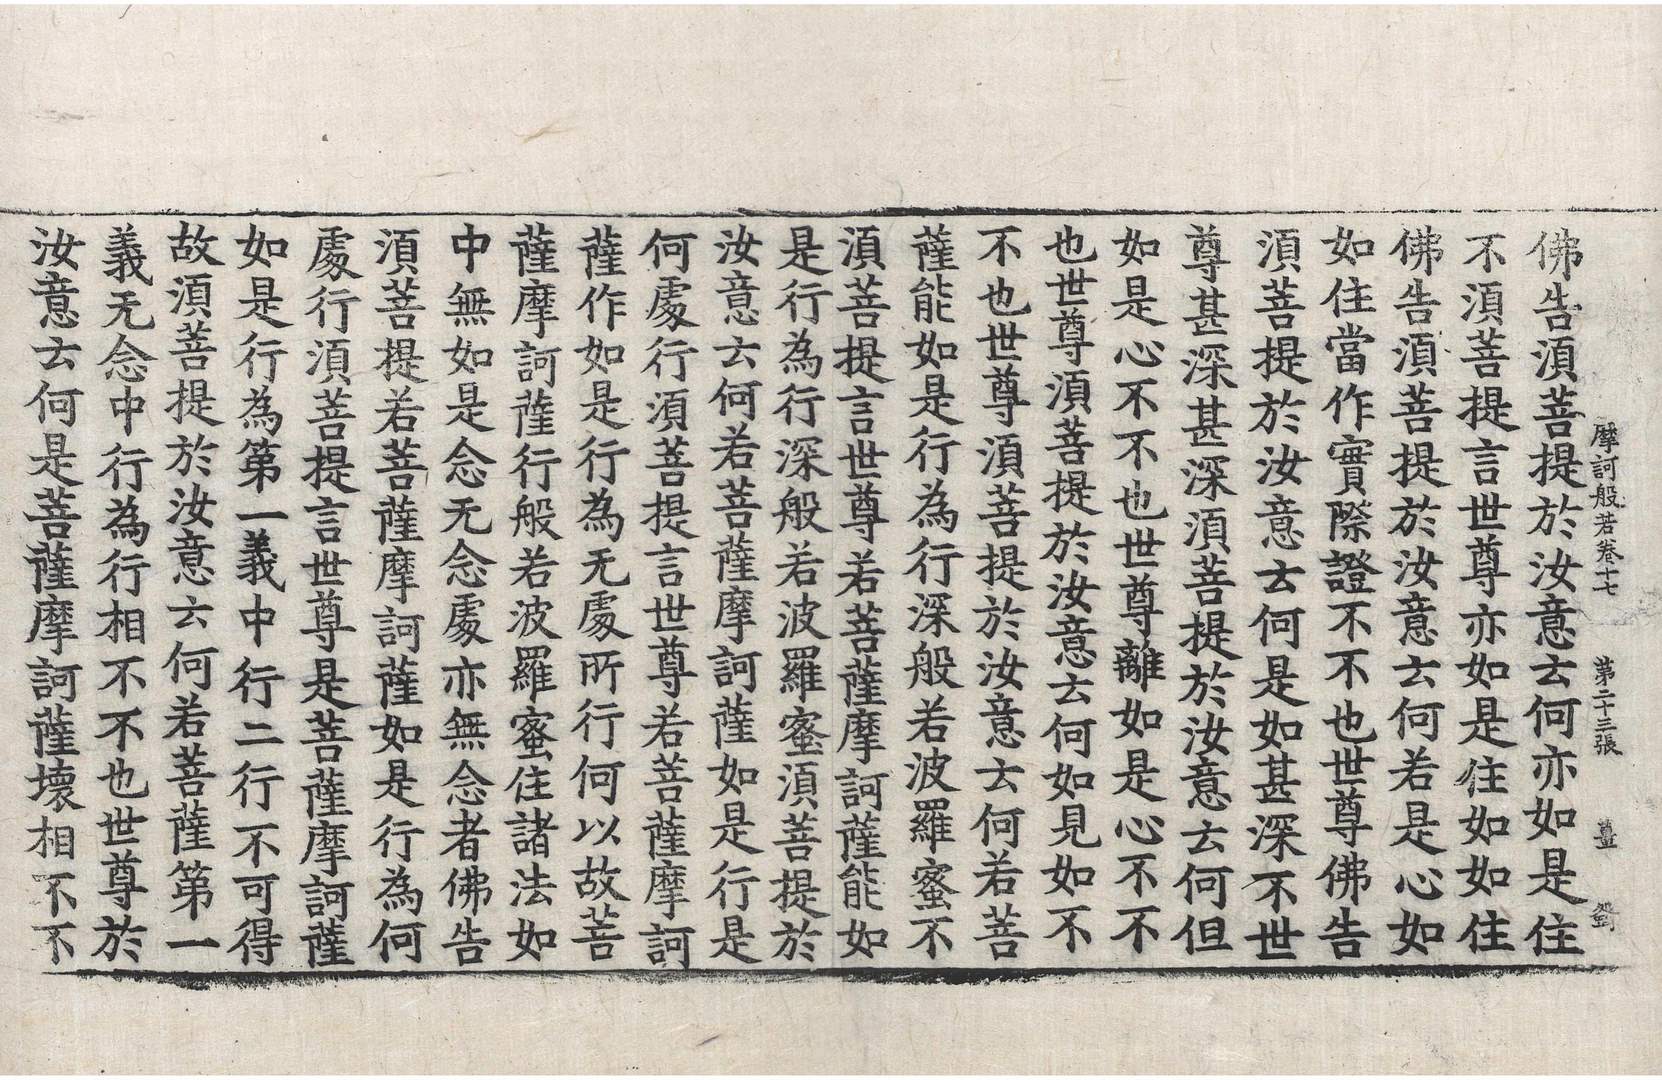 摩訶般若卷十七 第二十三張 薑
佛告須菩提於汝意云何亦如是住
不須菩提言世尊亦如是住如如住
佛告須菩提於汝意云何若是心如
如住當作實際證不不也世尊佛告
須菩提於汝意云何是如甚深不世
尊甚深甚深須菩提於汝意云何但
如是心不不也世尊離如是心不不
也世尊須菩提於汝意云何如見如不
不也世尊須菩提於汝意云何若菩
薩能如是行為行深般若波羅蜜不
須菩提言世尊若菩薩摩訶薩能如
是行為行深般若波羅蜜須菩提於
汝意云何若菩薩摩訶薩如是行是
何處行須菩提言世尊若菩薩摩訶
薩作如是行為无處所行何以故菩
薩摩訶薩行般若波羅蜜住諸法如
中無如是念无念處亦無念者佛告
須菩提若菩薩摩訶薩如是行為何
處行須菩提言世尊是菩薩摩訶薩
如是行為第一義中行二行不可得
故須菩提於汝意云何若菩薩第一
義无念中行為行相不不也世尊於
汝意云何是菩薩摩訶薩壞相不不